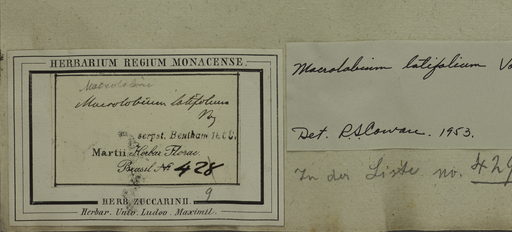 HERBARIUM REGIUM MONACENSE.
Macrolobium
Macrolobium latifolium
Vg
scrpt. Bentham
Martii Herbar. Florae
Brasil. No 428
9
HERB. ZUCCARINII.
Herbar. Univ. Ludov. Maximil.
Macrolobium latifolium Vo
Det. R.S. Cowan. 1953.
In der Liste no. 429